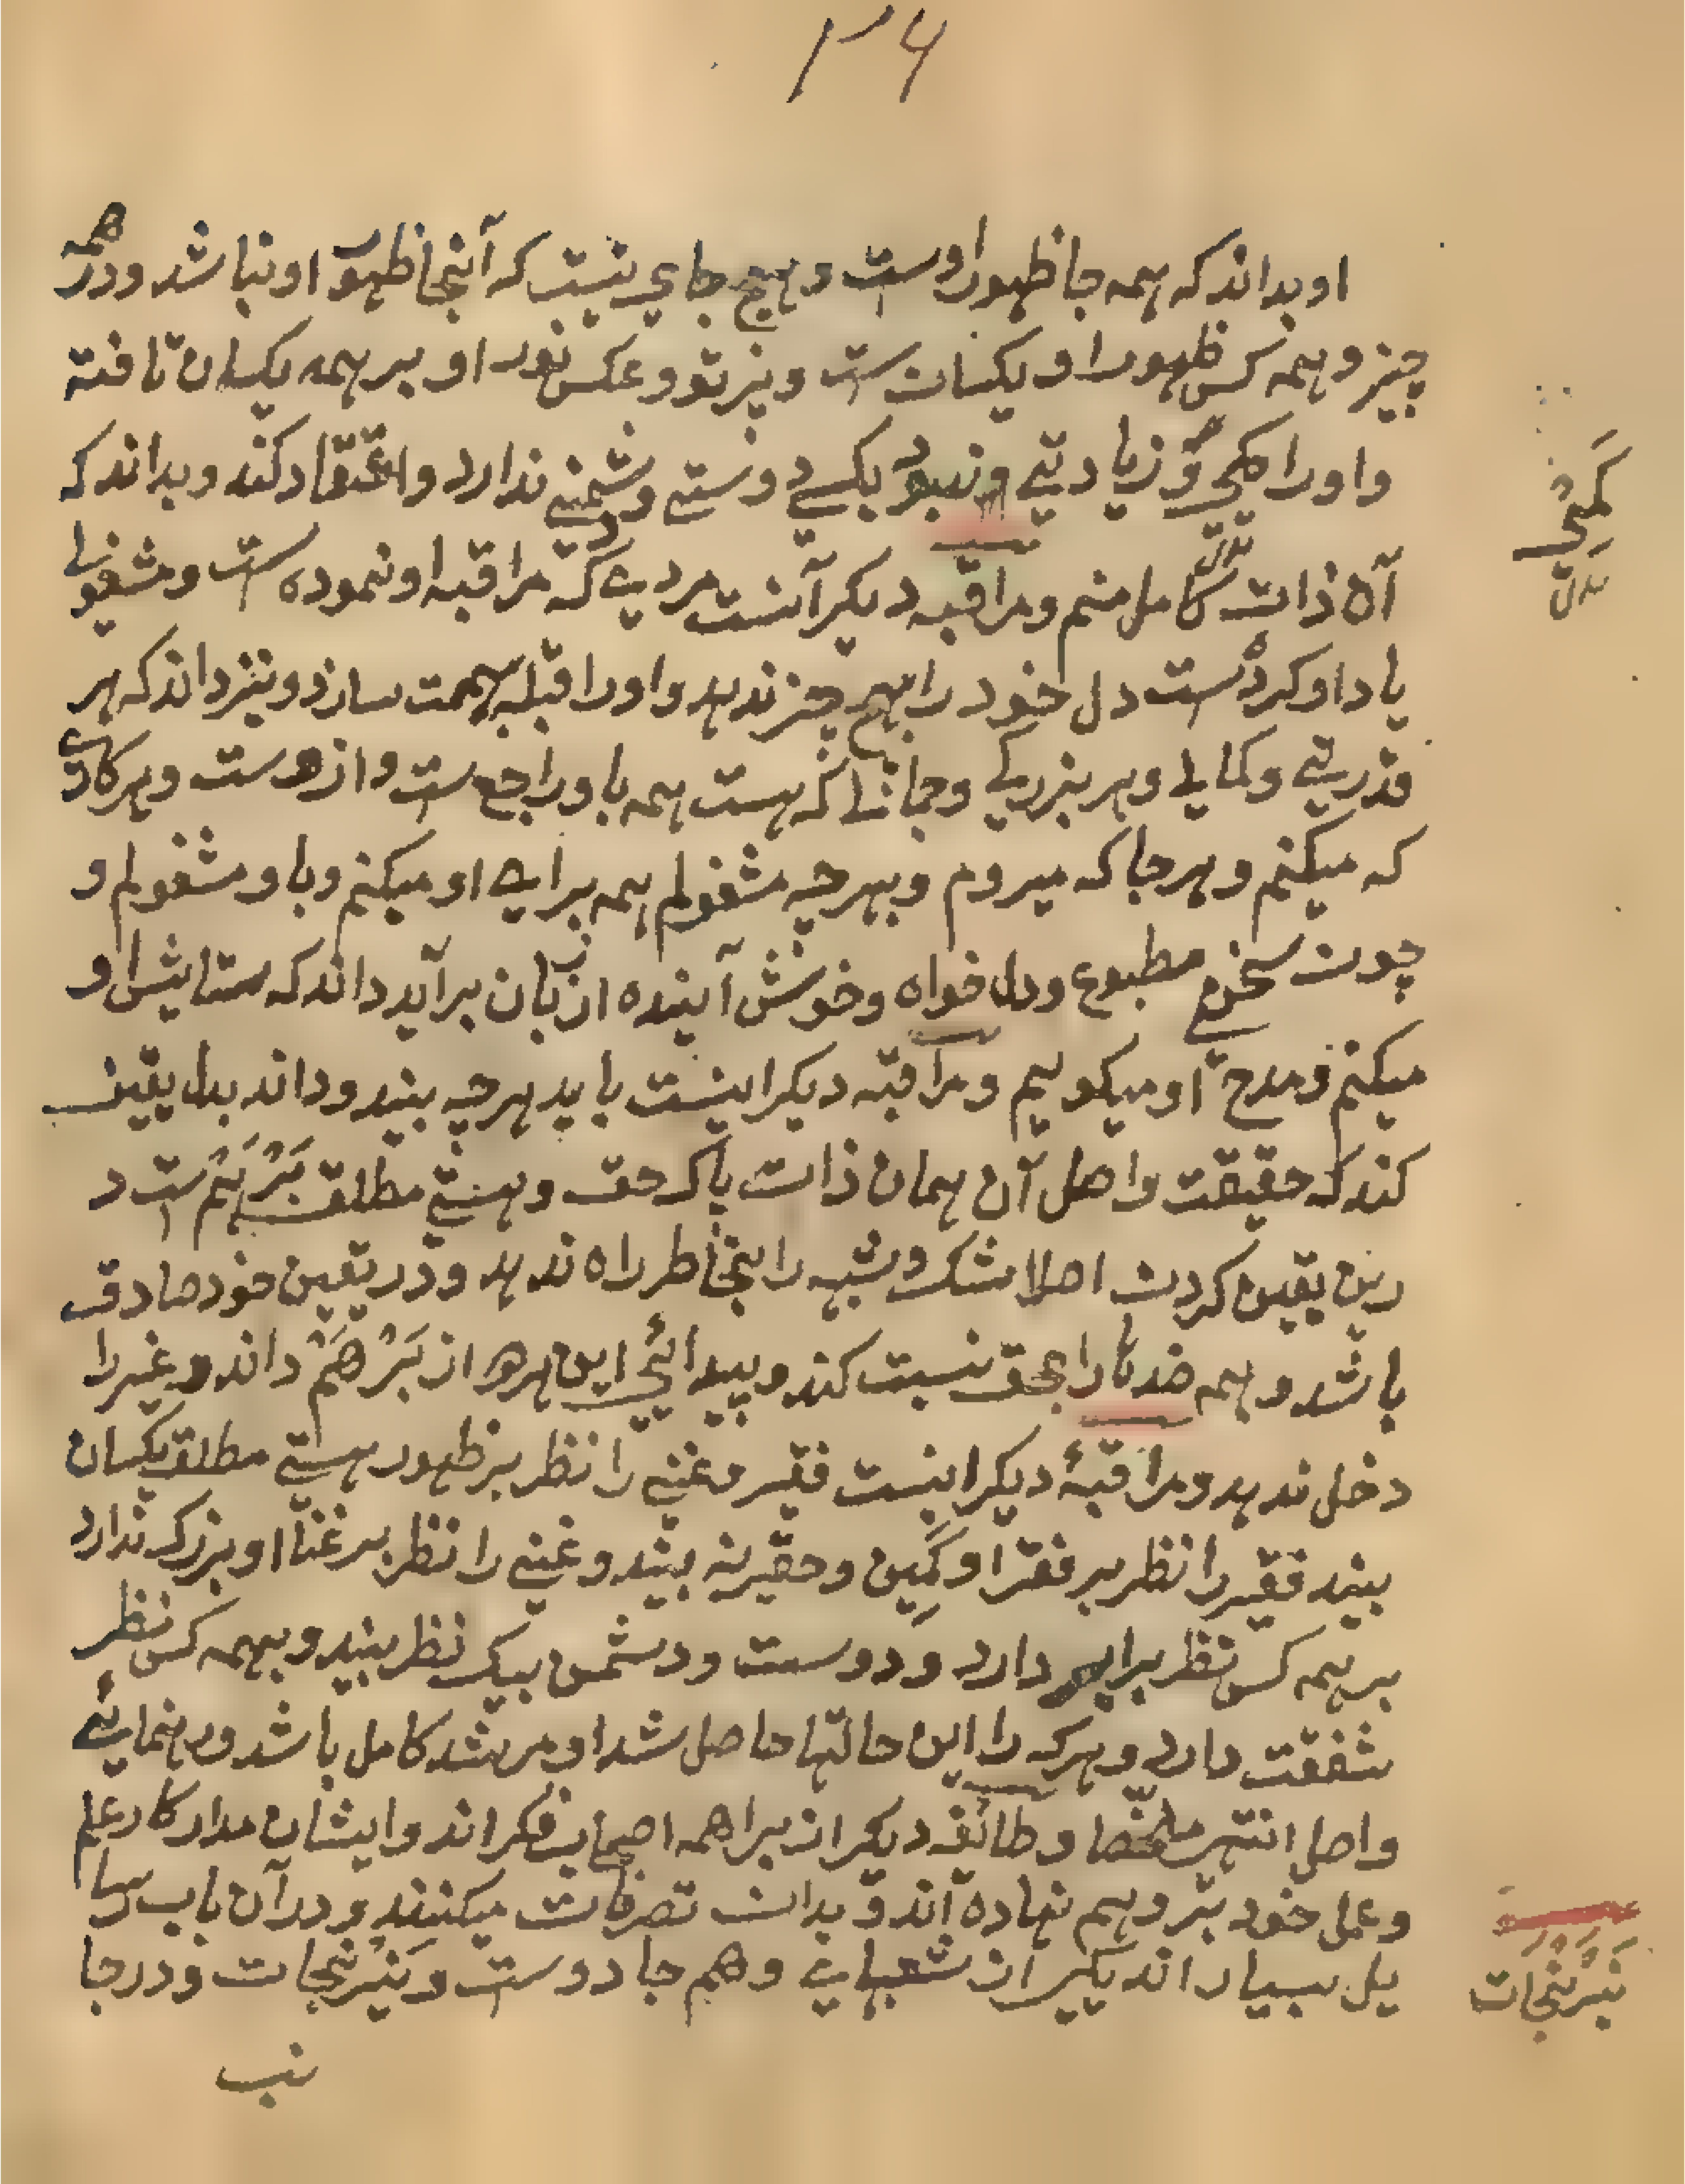 ۳۶
او بداند که همه جا ظهور اوست و هیچ جای نیست که آنجا ظهور او نباشد و در همه
چیز و همه کس ظهور او یکسان ست و پرتو و عکس نور او بر همه یکسان تافته
و او را کمی و زیادتی و نبود بکسے دوستے و دشمنے ندارد و اعتقاد کند و بداند که
آن ذات کامل منم و مراقبه دیگر آنست مردی که مراقبه او نموده ست و مشغولی
یاد او کرده ست دل خود را بهیچ چیز ندهد و او را قبله همت سازد و نیز داند که هر
قدرتے و کمالے و هر بزرگے و که هست همه باو راجع ست و ازوست و هر کاری
که میکنم و هر جا که میروم و بهر چه مشغولم همه برای او میکنم و باو مشغولم و
چون سخنے مطبوع و دل خواه و خوش آینده از زبان برآید داند که ستایش او
میکنم و مدح او میگویم و مراقبه دیگر اینست باید هر چه بیند و داند بدل یقین
کند که حقیقت و اصل آن همان ذات پاک حق و هستے مطلق بَرْهَمْ ست د
رین یقین کردن اصلا شک و شبه را بخاطر راه ندهد و در یقین خود صادق
باشد و همه ضدها را بحق نسبت کند و پیدائی این هر دو از بَرْهَمْ داند و غیر را
دخل ندهد و مراقبهٔ دیگر اینست فقیر و غنی را نظر بر ظهور هستے مطلق یکسان
بیند فقیر را نظر بر فقر او کمین و حقیر نه بیند و غنی را نظر بر غنا او بزرگ ندارد
بر همه کس نظر برابر دارد و دوست و دشمن بیک نظر بیند و بهمه کس نظر
شفقت دارد و هر که را این حالتها حاصل شد او مرشد کامل باشد و رهنمائے
واصل انتهی ملخصا و طائفه دیگر از براهمه اصحاب فکر اند و ایشان مدار کار علم
و عمل خود بر وهم نهاده اند و بدان تصرفات میکنند و در آن باب رسا
یل بسیار اند یکے از و هم جادوست و نیرنجات و درجا
کَمی
بدل
نَیرَنْجات
نب